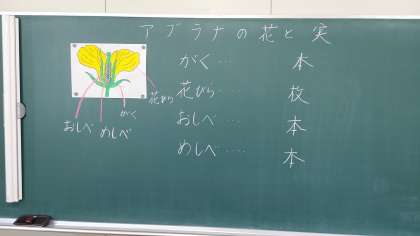 アブラナの花と実
がく… 本
花びら… 枚
おしべ… 本
めしべ…… 本
花びら
がく
おしべ めしべ